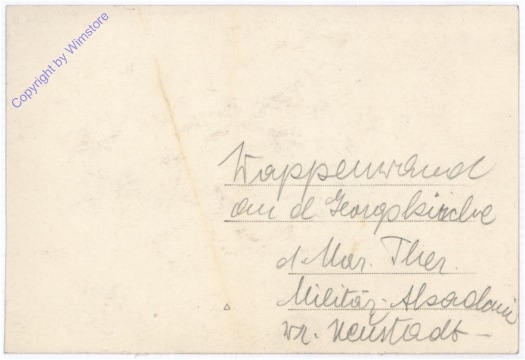 Copyright by Wimstore
Wappenwand
an d Georgskirche
d. Mar. Ther.
Militär-Akademi
Wr. Neustadt –